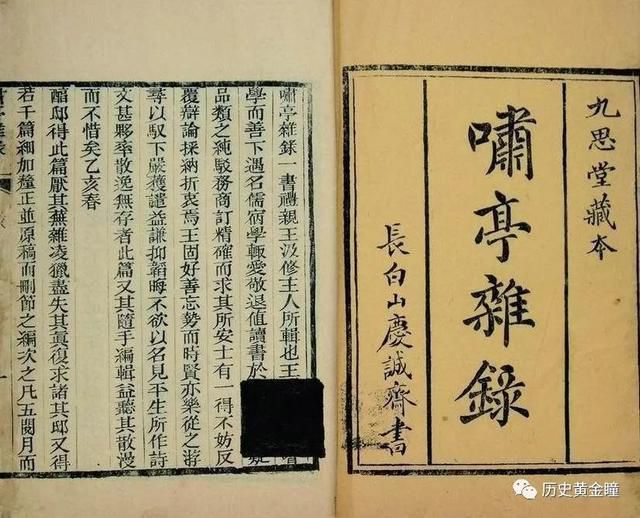 九思堂藏本
嘯亭雜錄
長白山慶誠齋書
嘯亭雜錄一書禮親王汲修主人所輯也王
學而善下遇名儒宿學輒愛敬退值讀書於
品類之純駁務商訂精確而求其所安士有一得不妨反
覆辯論採納折衷焉王固好善忘勢而時賢亦樂從之游
尋以馭下嚴獲譴益謙抑韜晦不欲以名見平生所作詩
文甚夥率散逸無存者此篇又其隨手編輯益聽其散漫
而不惜矣乙亥春
醕邸得此篇厭其蕪雜凌獵盡失其眞復求諸其邸又得
若干篇細加釐正並原稿而刪節之編次之凡五閱月而
历史黄金瞳